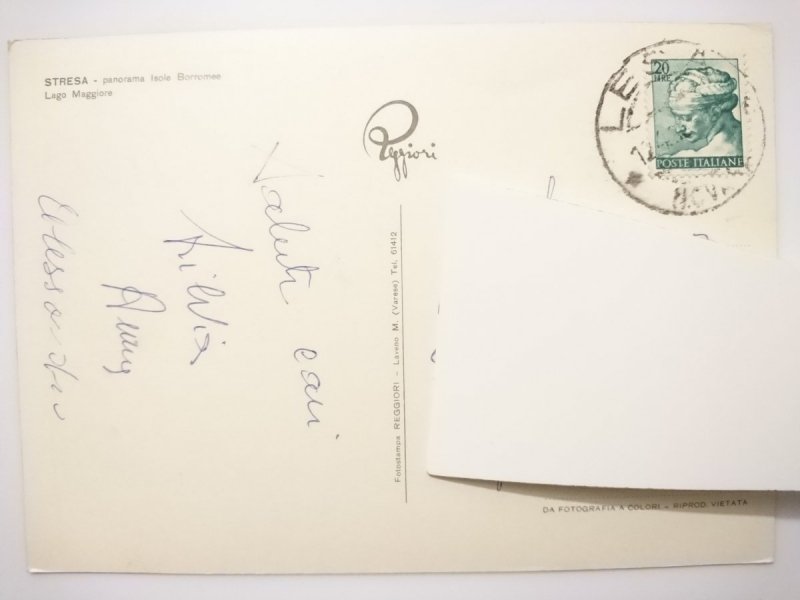 STRESA - panorama Isole Borromee
Lago Maggiore
Reggiori
20 LIRE
POSTE ITALIANE
Saluti cari
Silvia
Fotostampa REGGIORI - Laveno M. (Varese) Tel. 61412
DA FOTOGRAFIA A COLORI - RIPROD. VIETATA